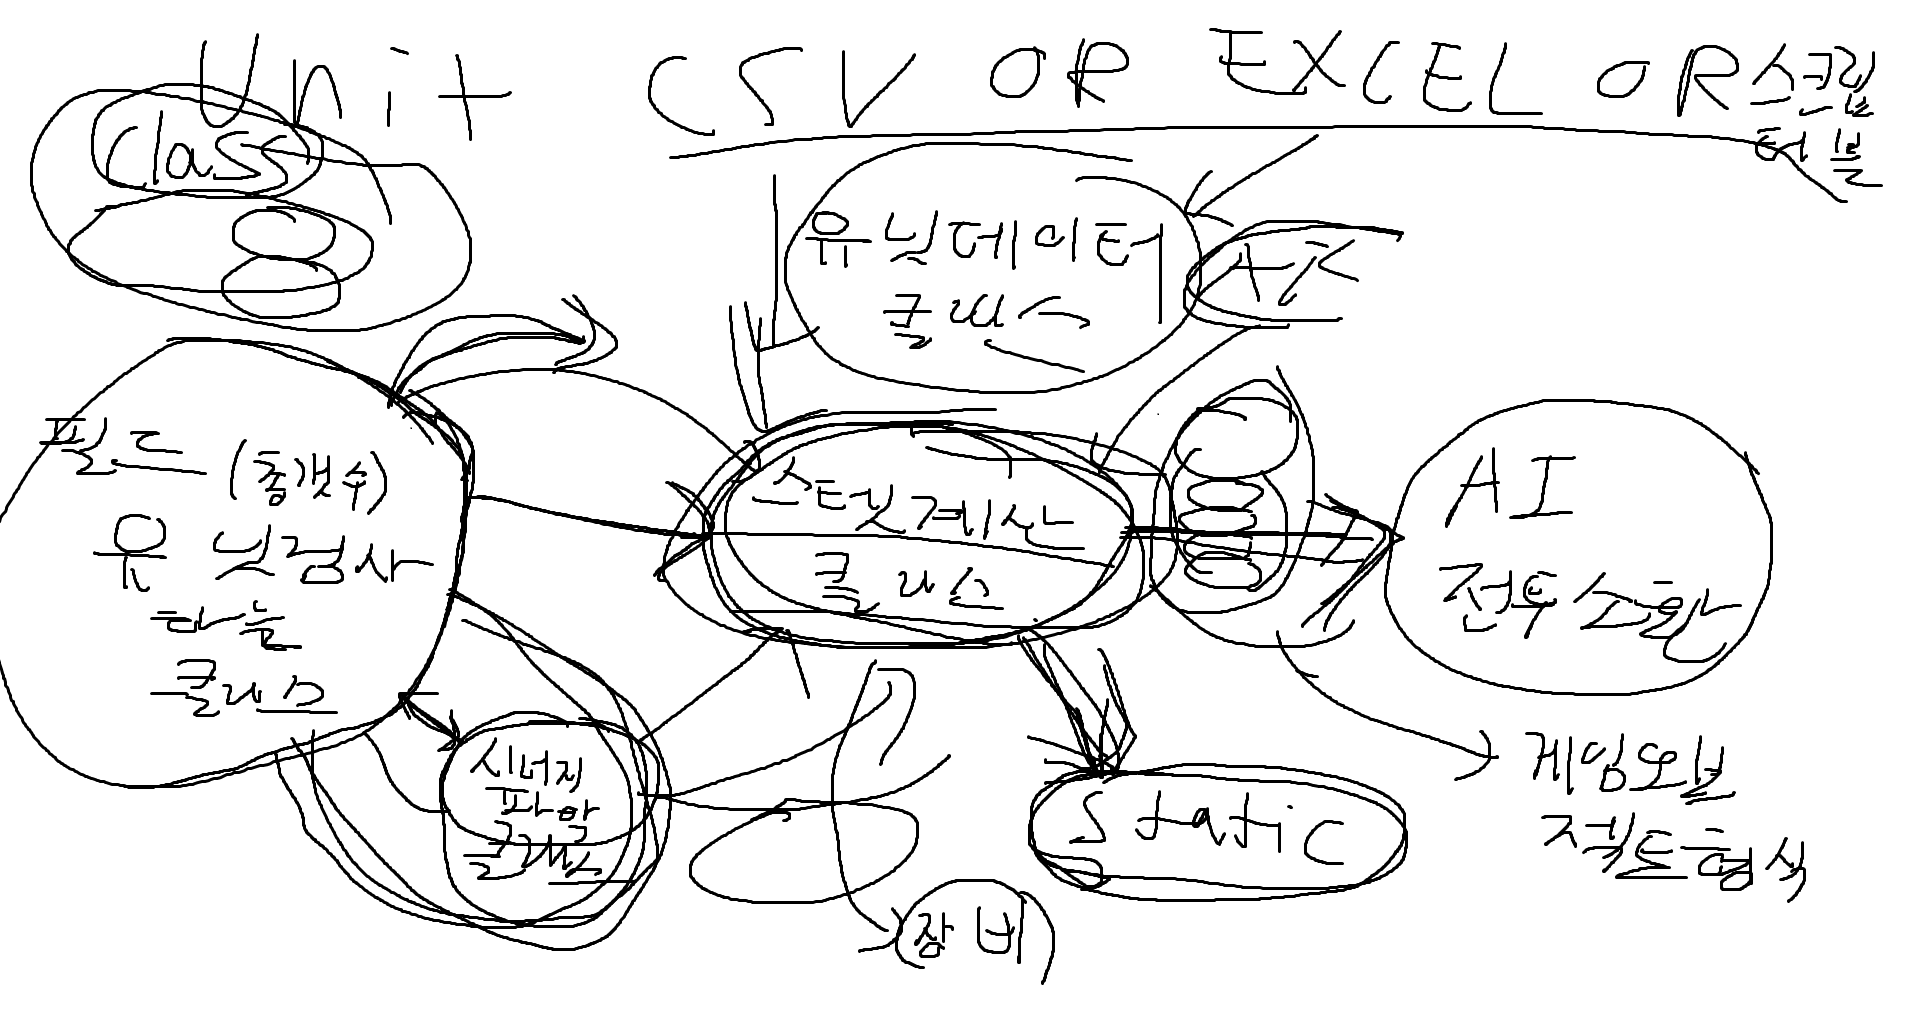 Unit CSV OR EXCEL OR 스크립
터블
Class
유닛데이터
클래스
필드 (총갯수)
유닛검사
하는
클래스
스탯계산
클래스
AI
전투소환
시너지
파악
클래스
Static
장비
게임오브
젝트형식